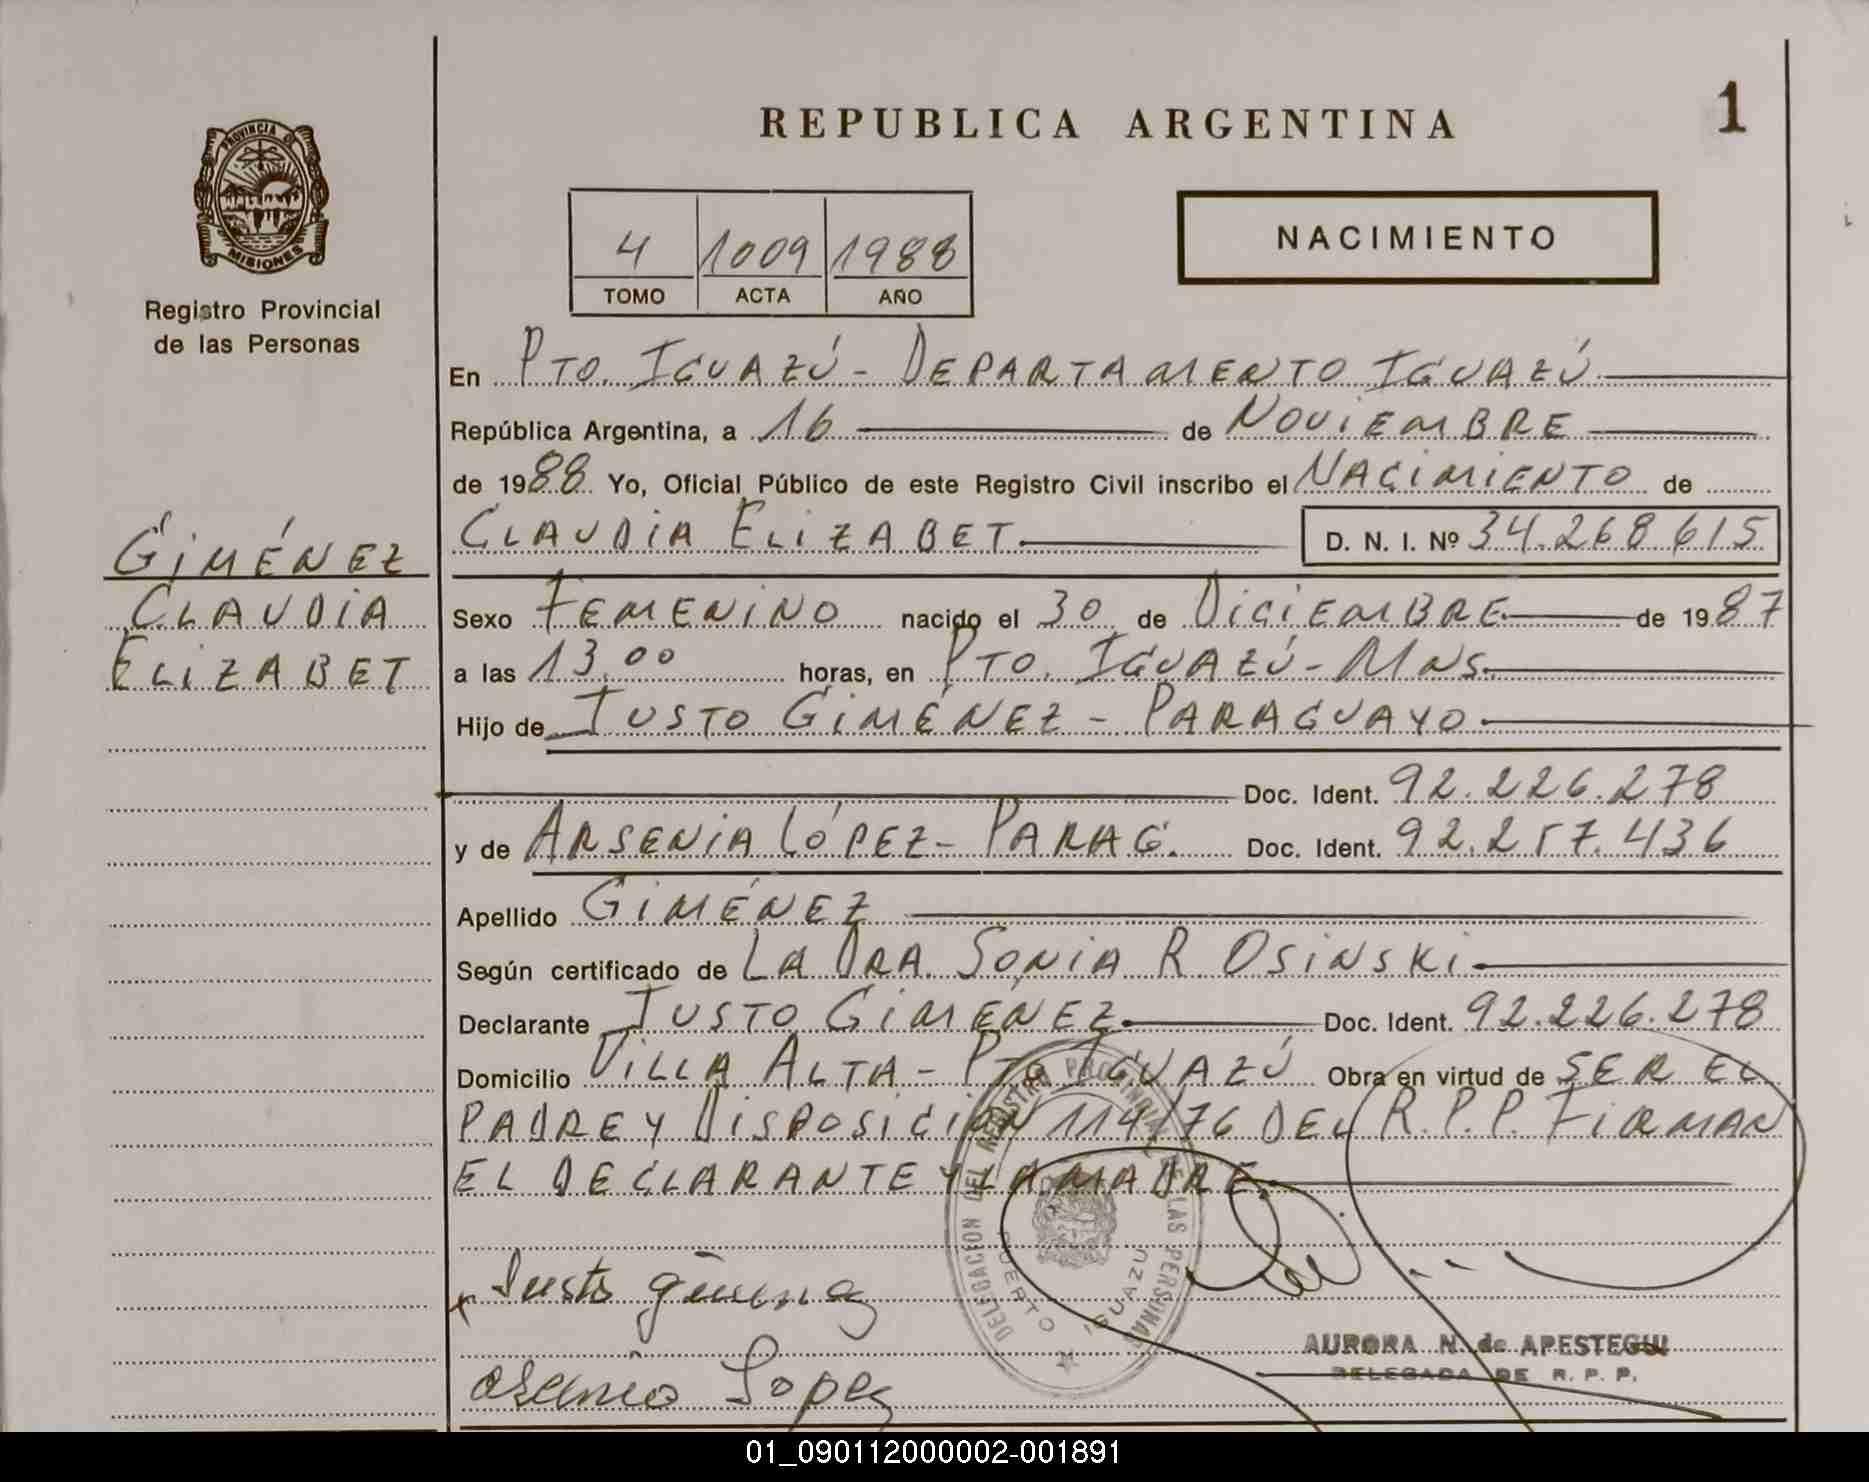 REPUBLICA ARGENTINA
1
PROVINCIA DE
MISIONES
Registro Provincial
de las Personas
4 1009 1988
TOMO ACTA AÑO
NACIMIENTO
En PTO. IGUAZÚ - DEPARTAMENTO IGUAZÚ
República Argentina, a 16 de NOVIEMBRE
de 1988 Yo, Oficial Público de este Registro Civil inscribo el NACIMIENTO de
CLAUDIA ELIZABET D. N. I. Nº 34.268.615
GIMÉNEZ
CLAUDIA
ELIZABET
Sexo FEMENINO nacido el 30 de DICIEMBRE de 1987
a las 13,00 horas, en PTO. IGUAZÚ - MNS.
Hijo de JUSTO GIMÉNEZ - PARAGUAYO
Doc. Ident. 92.226.278
y de ARSENIA LÓPEZ - PARAG. Doc. Ident. 92.257.436
Apellido GIMÉNEZ
Según certificado de LA DRA. SONIA R OSINSKI
Declarante JUSTO GIMÉNEZ Doc. Ident. 92.226.278
Domicilio VILLA ALTA - PTO IGUAZÚ Obra en virtud de SER EL
PADRE Y DISPOSICIÓN 114/76 DEL R.P.P. FIRMAN
EL DECLARANTE Y LA MADRE.
DELEGACION DEL REGISTRO PROVINCIAL DE LAS PERSONAS
PUERTO IGUAZU
x Justo gimenez
arsenia Lopez
AURORA N. de APESTEGUI
DELEGADA DE R. P. P.
01_090112000002-001891